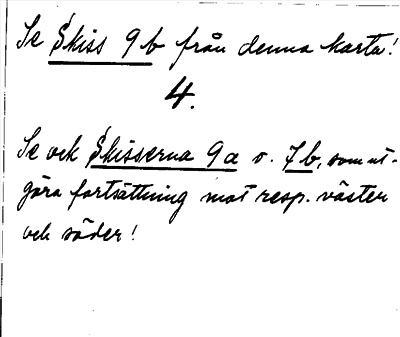 Se Skiss 9 b från denna karta!
4.
Se ock Skisserna 9 a o. 7 b, som ut-
göra fortsättning mot resp. väster
och söder!